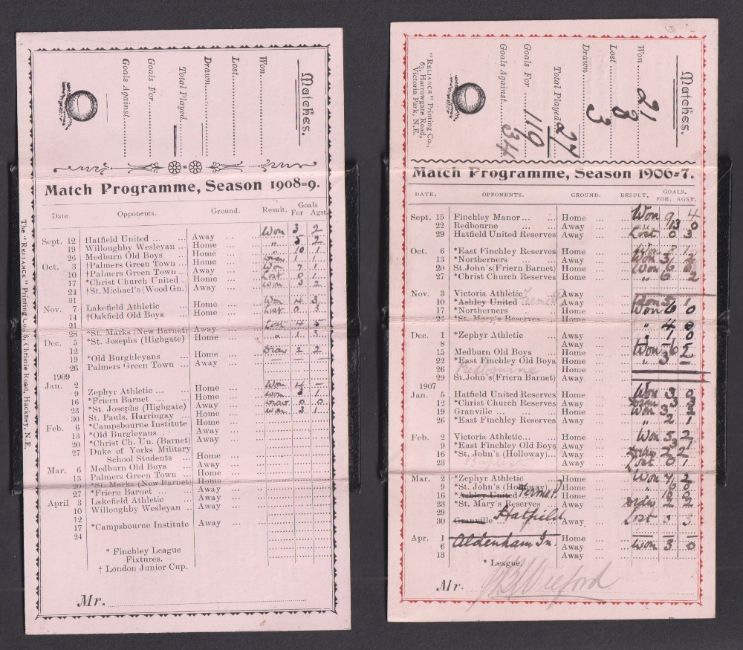 Matches.
Won
Lost
Drawn
Total Played
Goals For
Goals Against
Match Programme, Season 1908=9.
Date. Opponents. Ground. Result. Goals For Agst.
Sept. 12 Hatfield United ... Away Won 3 2
19 Willoughby Wesleyan ... Home " 3 2
26 Medburn Old Boys ... Home " 10 1
Oct. 3 †Palmers Green Town ... Away
10 †Palmers Green Town ... Home 7 1
17 *Christ Church United Home Lost 0 1
24 *St. Michael's (Wood Gn. Away Won 3 2
31
Nov. 7 Lakefield Athletic Home Won 4 3
14 †Oakfield Old Boys Home Lost 0
21
28 *St. Marks (New Barnet) Away Lost 4 5
Dec. 5 *St. Josephs (Highgate) Home " 1 3
12
19 *Old Burgleyans Away Draw 2 2
26 Palmers Green Town ... Away
1909
Jan. 2 Won 4
9 Zephyr Athletic ... Home Won 3 1
16 *Friern Barnet ... Home
23 *St. Josephs (Highgate) Away Draw 0 0
30 St. Pauls, Harringay Home Won 3 1
Feb. 6 *Campsbourne Institute Home
13 *Old Burgleyans Home
20 *Christ Ch. Un. (Barnet) Away
27 Duke of Yorks Military
School Students ... Home
Mar. 6 Medburn Old Boys Away
13 Palmers Green Town ... Away
20 *St. Marks (New Barnet) Home
27 *Friern Barnet Away
April 3 Lakefield Athletic ... Away
10 Willoughby Wesleyan ... Away
12
17 *Campsbourne Institute Away
24
* Finchley League
Fixtures.
† London Junior Cup.
Mr.
The "RELIANCE" Printing Co., Christie Road, Hackney, N.E.
Matches.
Won 21
Lost 3
Drawn 3
Total Played 27
Goals For 119
Goals Against 34
"RELIANCE" Printing Co.,
Harrowgate Road,
Victoria Park, N.E.
Match Programme, Season 1906=7.
DATE. OPPONENTS. GROUND. RESULT. GOALS. FOR. AGST.
Sept. 15 Finchley Manor ... Home Won 9 4
22 Redbourne ... Home " 13 0
29 Hatfield United Reserves Away Lost 0 3
Oct. 6 *East Finchley Reserves Home
13 *Northerners Away Won 3 2
20 St. John's (Friern Barnet) Home Won 6
27 *Christ Church Reserves Home " 6 2
Nov. 3 Victoria Athletic Home Won 5 1
10 *Ashley United Away
17 *Northerners Home Won 6 0
24 *St. Mary's Reserves Home " 4
Dec. 1 *Zephyr Athletic Away
8
15 Medburn Old Boys Home Won 6
22 *East Finchley Old Boys Home " 3
26 Redbourne Home
29 St. John's (Friern Barnet) Away
1907
Jan. 5 Hatfield United Reserves Home Won 3 0
12 *Christ Church Reserves Away Draw 3 3
19 Granville Home Won 3 2
26 *East Finchley Reserves Away " 2 1
Feb. 2 Victoria Athletic Home Won 5 2
9 *East Finchley Old Boys Away
16 *St. John's (Holloway) Away Draw 2 2
23 Lost 0 1
Mar. 2 *Zephyr Athletic Home Won 4 2
9 *St. John's (Holloway) Home " 9 0
16 *Ashley United Home
23 *St. Mary's Reserves Away Draw 2 2
29 Home
30 Granville Hatfield Away Lost 3 3
Apr. 1 Aldenham In. Home Won 3 0
6 Away
13 Away
* League
Mr.